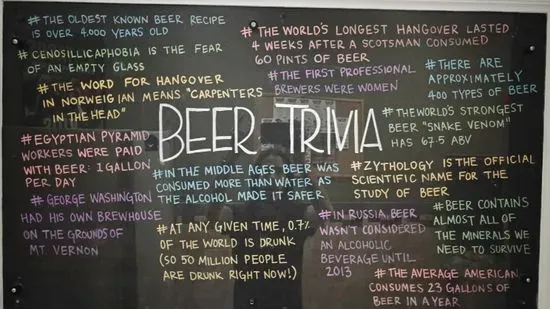 # THE OLDEST KNOWN BEER RECIPE
IS OVER 4,000 YEARS OLD
# CENOSILLICAPHOBIA IS THE FEAR
OF AN EMPTY GLASS
# THE WORD FOR HANGOVER
IN NORWEIGIAN MEANS "CARPENTERS
IN THE HEAD"
# EGYPTIAN PYRAMID
WORKERS WERE PAID
WITH BEER: 1 GALLON
PER DAY
# GEORGE WASHINGTON
HAD HIS OWN BREWHOUSE
ON THE GROUNDS OF
MT. VERNON
# THE WORLD'S LONGEST HANGOVER LASTED
4 WEEKS AFTER A SCOTSMAN CONSUMED
60 PINTS OF BEER
# THE FIRST PROFESSIONAL
BREWERS WERE WOMEN
BEER TRIVIA
# IN THE MIDDLE AGES BEER WAS
CONSUMED MORE THAN WATER AS
THE ALCOHOL MADE IT SAFER
# AT ANY GIVEN TIME, 0.7%
OF THE WORLD IS DRUNK
(SO 50 MILLION PEOPLE
ARE DRUNK RIGHT NOW!)
# THERE ARE
APPROXIMATELY
400 TYPES OF BEER
# THE WORLD'S STRONGEST
BEER "SNAKE VENOM"
HAS 67.5 ABV
# ZYTHOLOGY IS THE OFFICIAL
SCIENTIFIC NAME FOR THE
STUDY OF BEER
# IN RUSSIA, BEER
WASN'T CONSIDERED
AN ALCOHOLIC
BEVERAGE UNTIL
2013
# BEER CONTAINS
ALMOST ALL OF
THE MINERALS WE
NEED TO SURVIVE
# THE AVERAGE AMERICAN
CONSUMES 23 GALLONS OF
BEER IN A YEAR